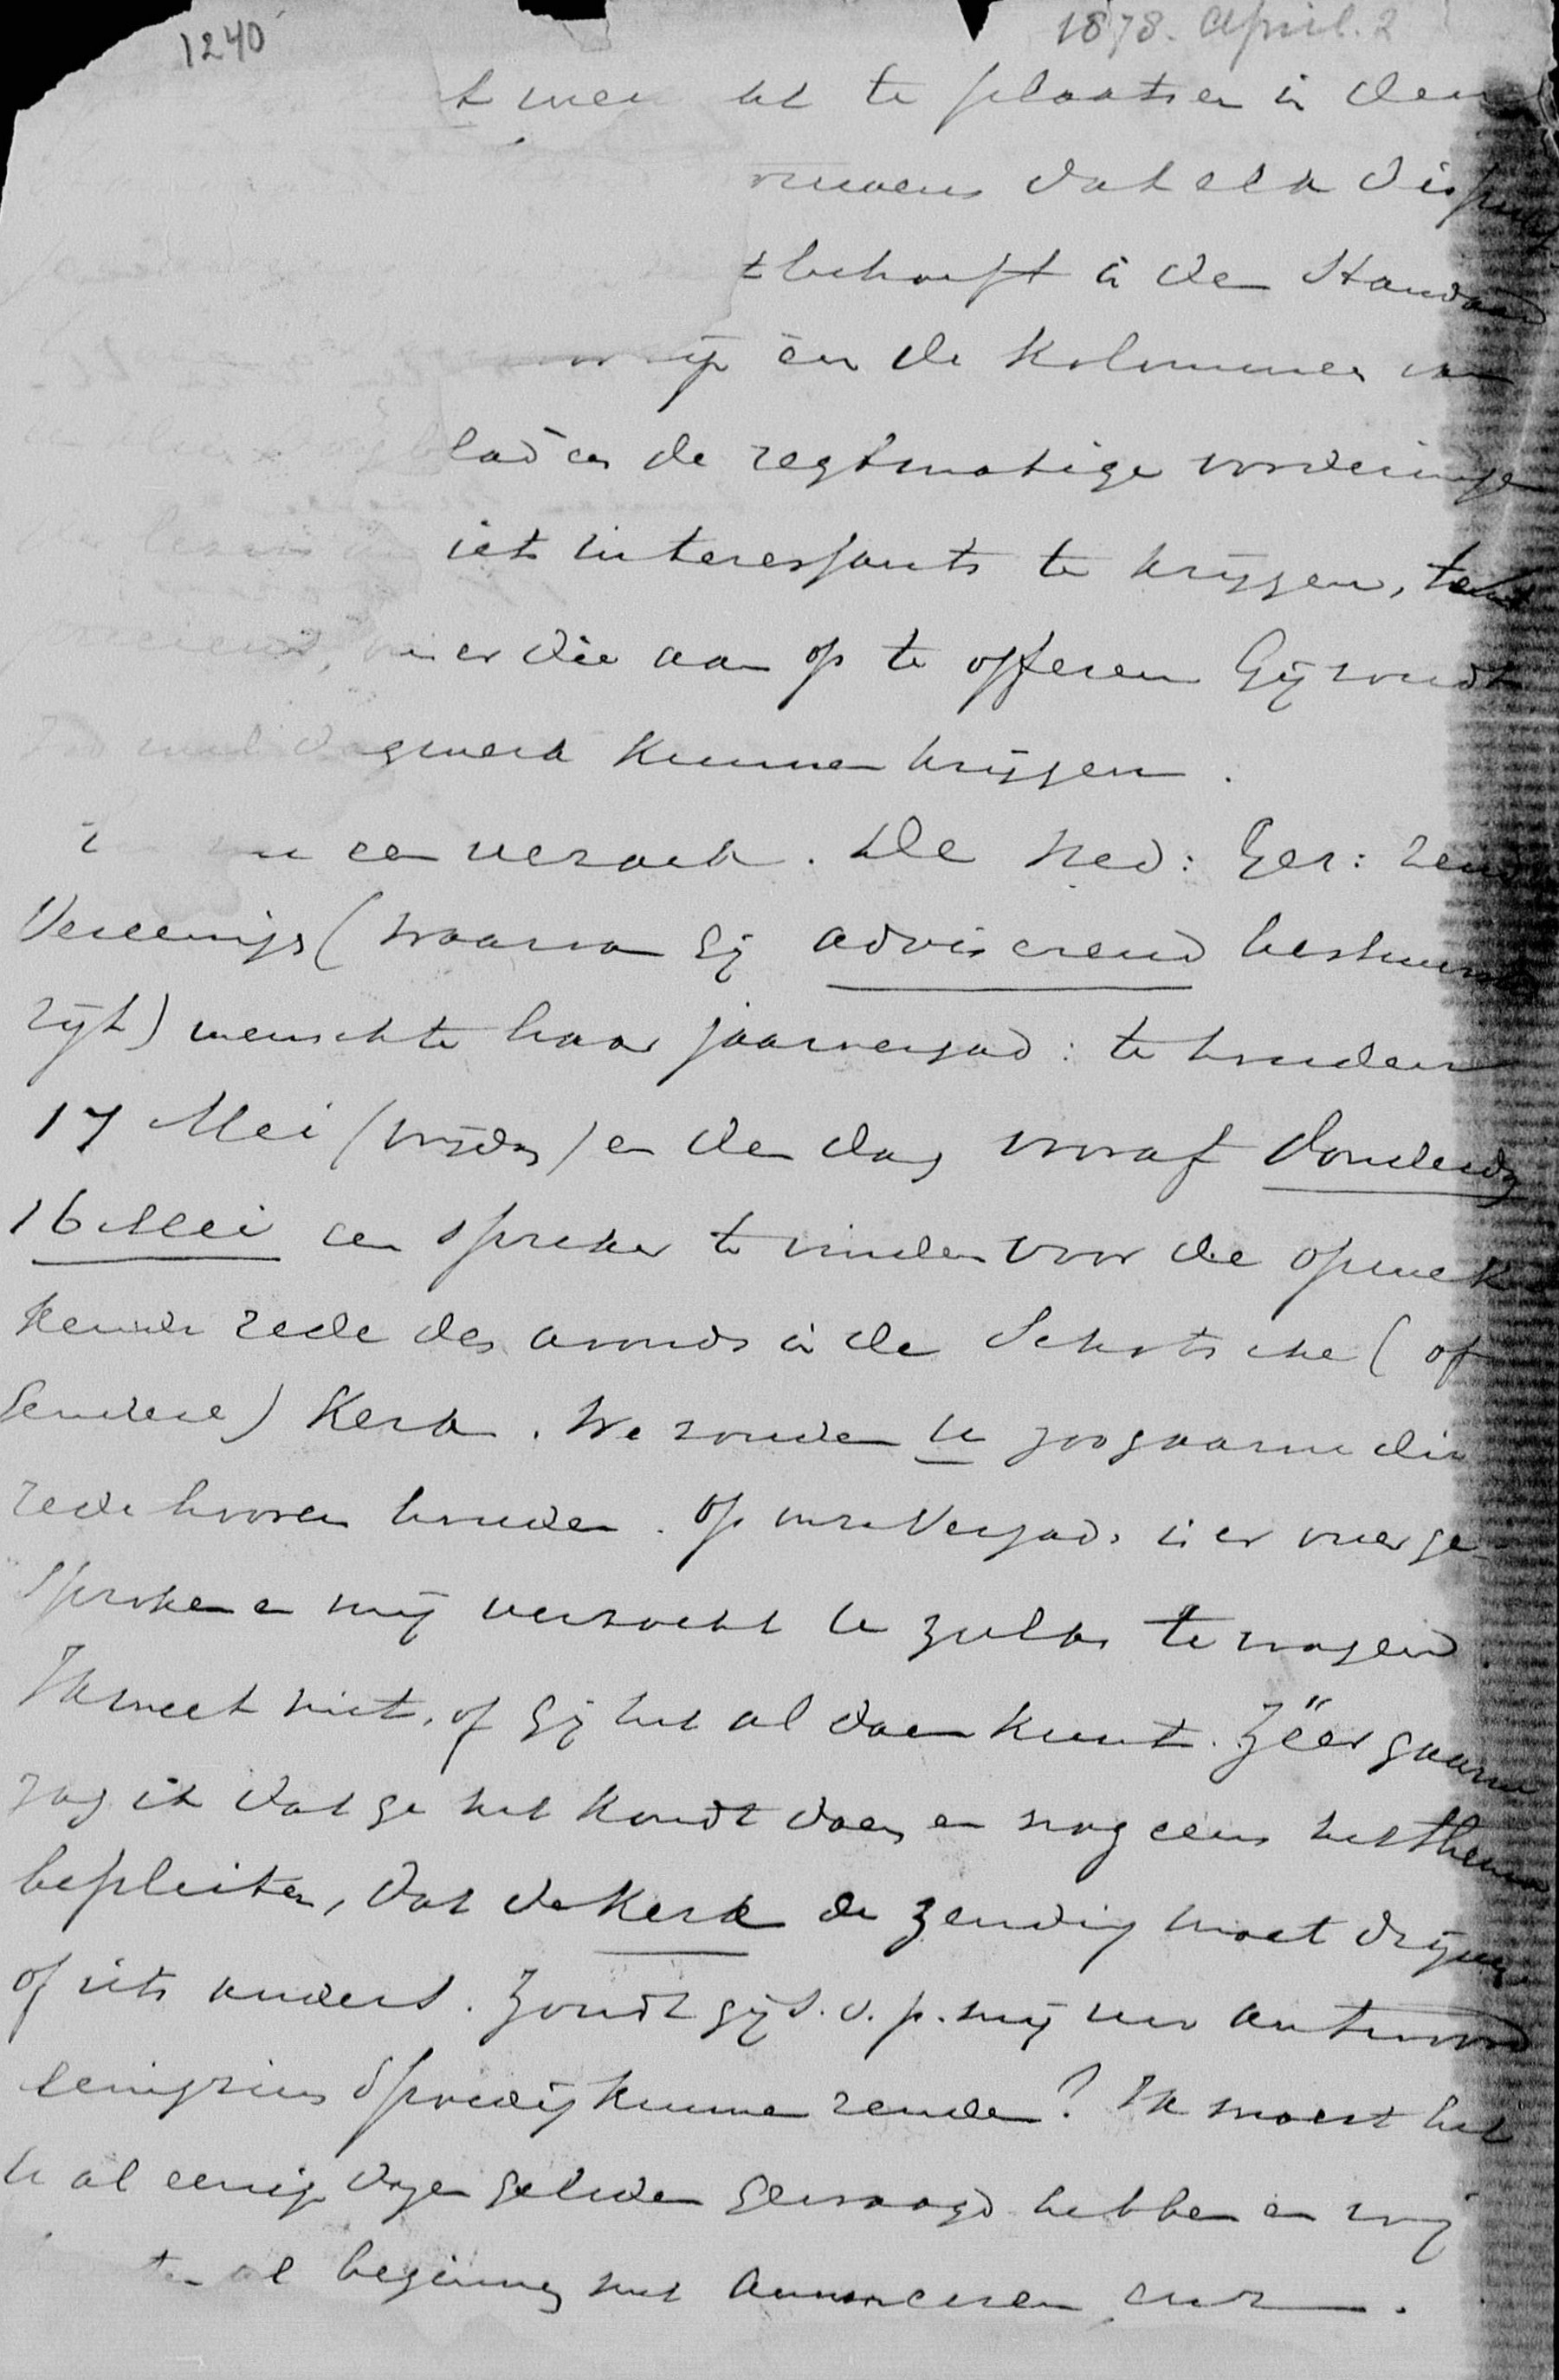 1240
1878. April. 2
te plaatsen in den
dat elk
behoeft in den Standaard
en de kolommen van
de regtmatige vorderingen
iets interessants te krijgen,
er die aan op te offeren Gij zoudt
kunnen krijgen.
een verzoek. De Ned: Ger: Zend
Vereenigg (waarvan Gij adviserend bestuurder
zijt) wenschte haar jaarvergad: te houden
17 Mei (vrijdag) en den dag vooraf Donderdag
16 Mei een spreker te vinden voor de opwek
kende rede des avonds in de Schotsche (of
eendere) Kerk. We zouden u zoo gaarne die
rede hooren houden. Op onze Vergad. is er over ge-
sproken en mij verzocht u zulks te vragen.
Ik weet niet, of Gij het al doen kunt. Zéér gaarne
zag ik dat ge het kondt doen en nog eens het thema
bepleiten, dat de Kerk de zending moet drijven
of iets anders. Zoudt gij s.v.p. mij uw antwoord
eenigzins spoedig kunnen zenden? Ik moest het
u al eenige dagen geleden gevraagd hebben en wij
al beginnen met annonceren enz.